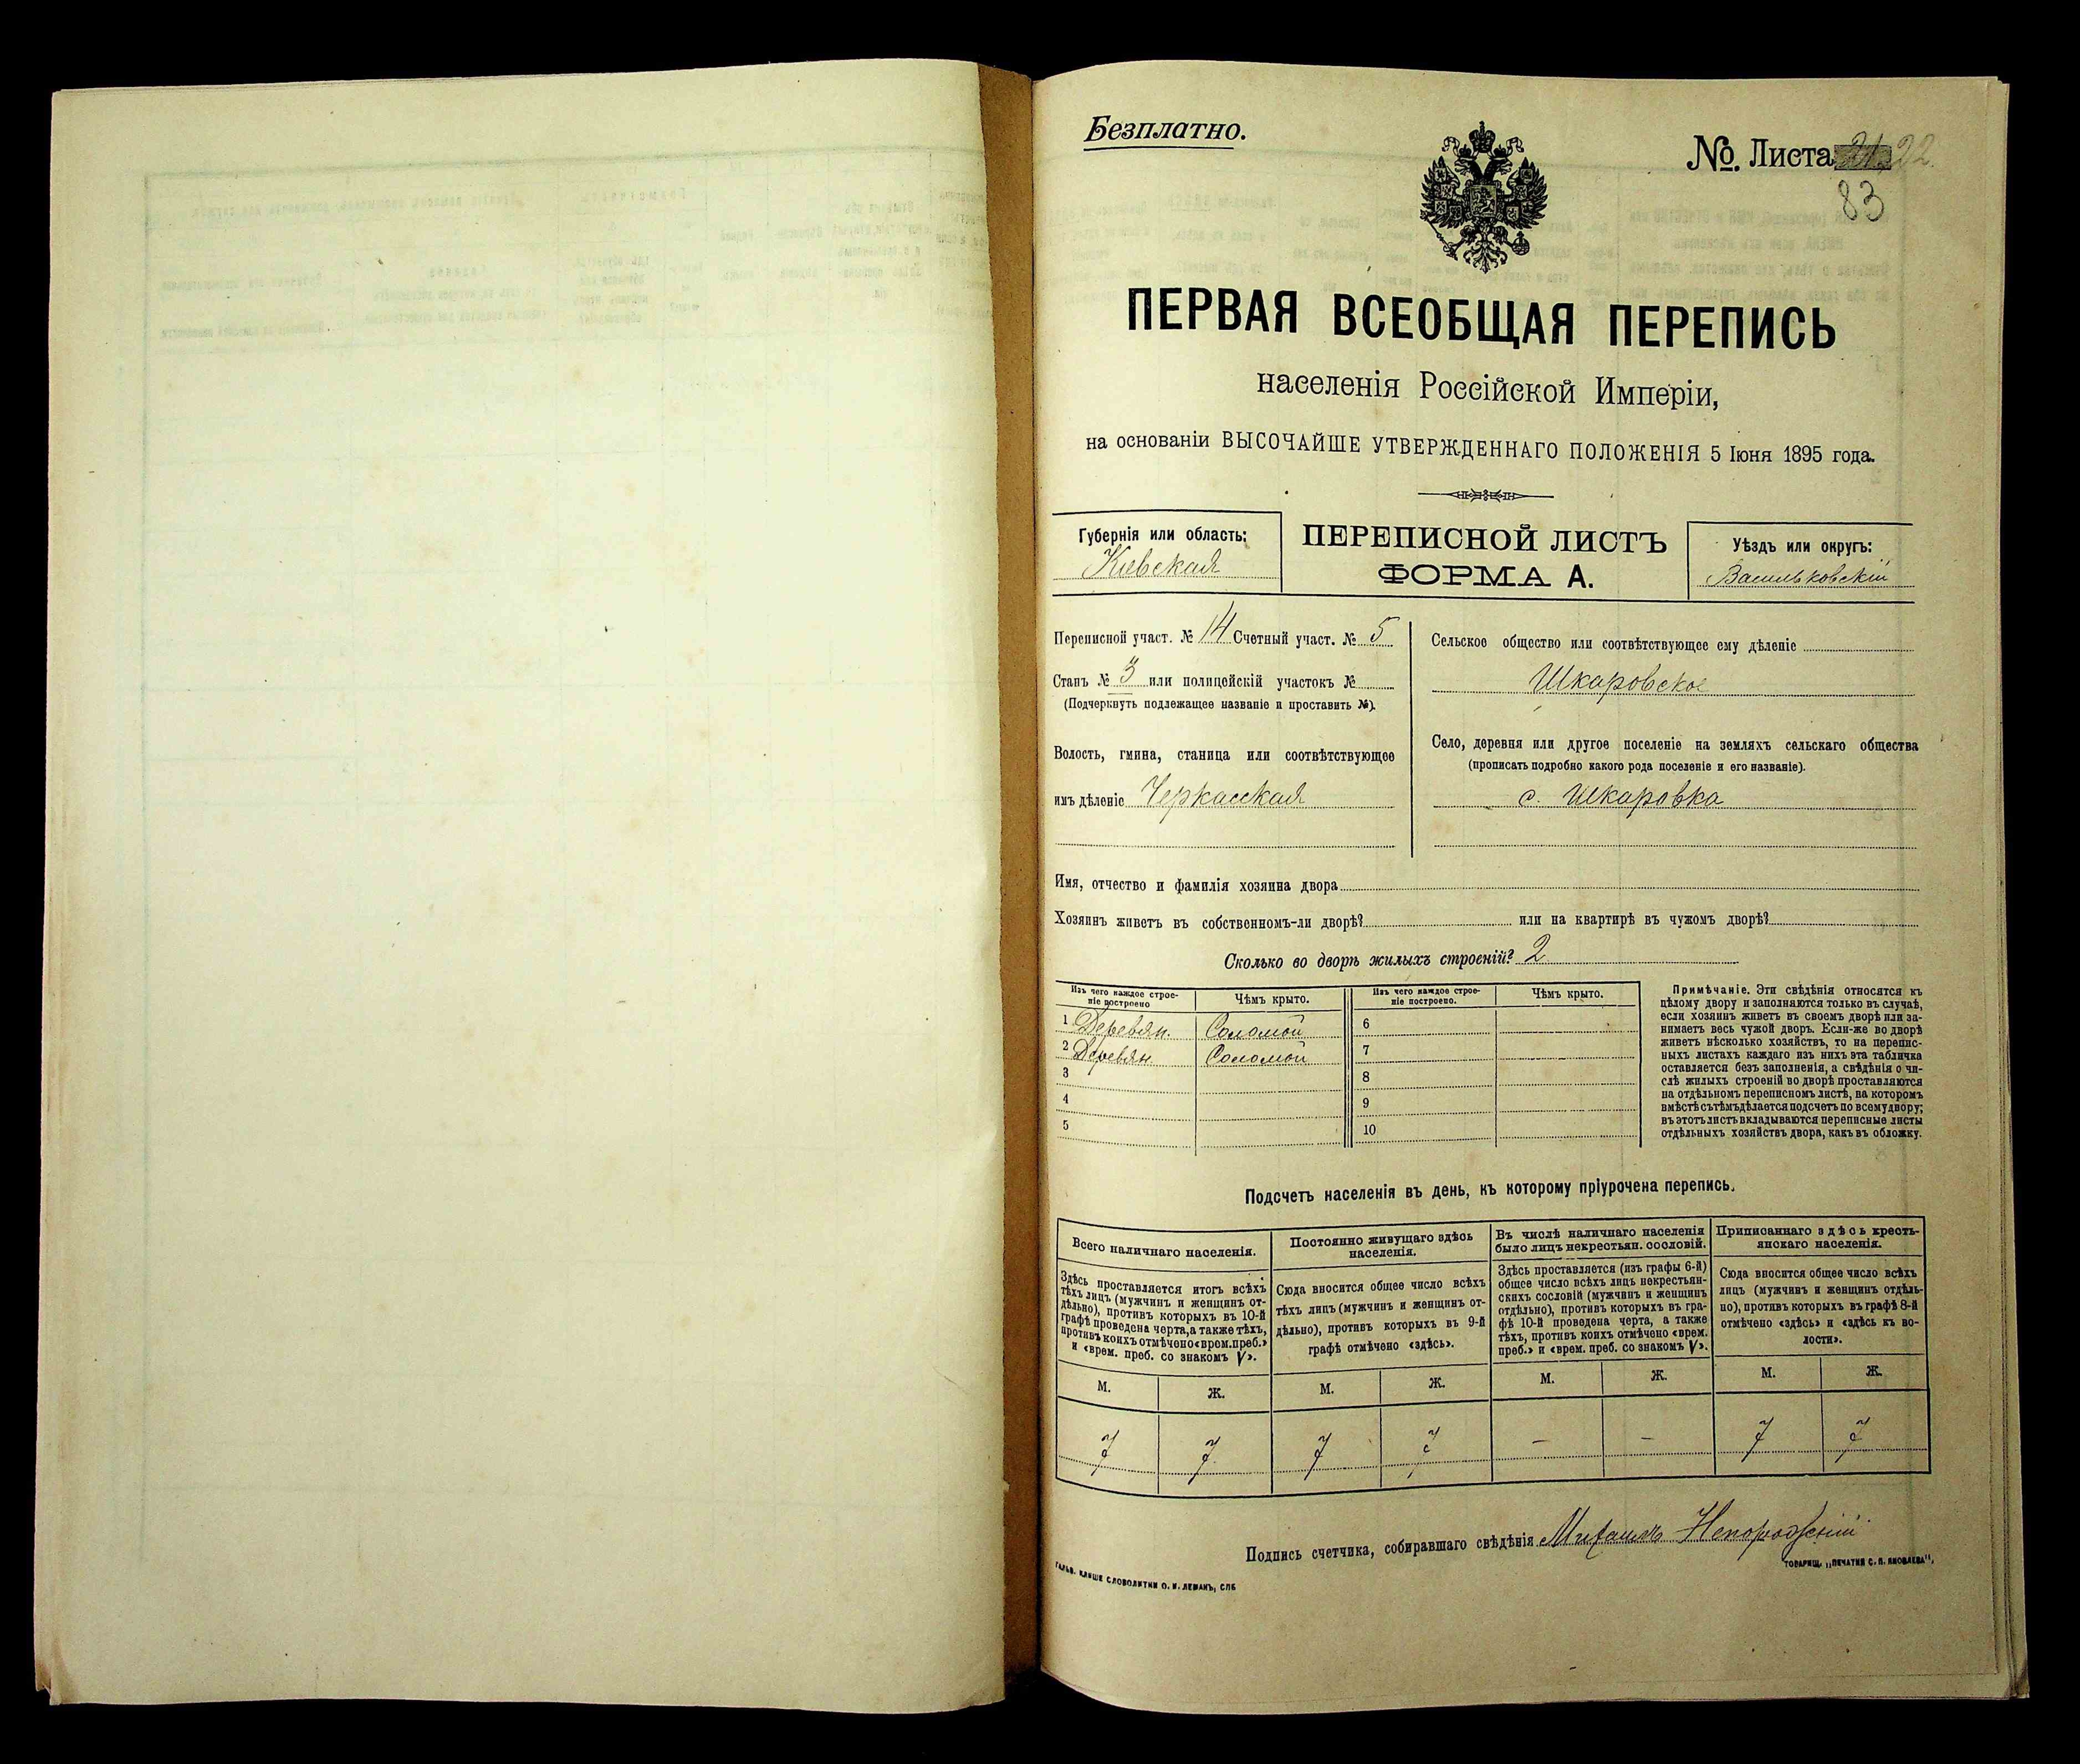 Безплатно.
№. Листа 21 22.
83
ПЕРВАЯ ВСЕОБЩАЯ ПЕРЕПИСЬ
населенія Россійской Имперіи,
на основаніи ВЫСОЧАЙШЕ УТВЕРЖДЕННАГО ПОЛОЖЕНІЯ 5 Іюня 1895 года.
Губернія или область:
Кіевская
ПЕРЕПИСНОЙ ЛИСТЪ
ФОРМА А.
Уѣздъ или округъ:
Васильковскій
Переписной участ. № 14 Счетный участ. № 5
Станъ № 3 или полицейскій участокъ №
(Подчеркнуть подлежащее названіе и проставить №).
Волость, гмина, станица или соотвѣтствующее
имъ дѣленіе Черкасская
Сельское общество или соотвѣтствующее ему дѣленіе
Шкаровское
Село, деревня или другое поселеніе на земляхъ сельскаго общества
(прописать подробно какого рода поселеніе и его названіе).
с. Шкаровка
Имя, отчество и фамилія хозяина двора
Хозяинъ живетъ въ собственномъ-ли дворѣ? или на квартирѣ въ чужомъ дворѣ?
Сколько во дворѣ жилыхъ строеній? 2
Изъ чего каждое строе-
ніе построено
Чѣмъ крыто.
Изъ чего каждое строе-
ніе построено.
Чѣмъ крыто.
1 Деревян. Соломой 6
2 Деревян. Соломой 7
3 8
4 9
5 10
Примѣчаніе. Эти свѣдѣнія относятся къ
цѣлому двору и заполняются только въ случаѣ,
если хозяинъ живетъ въ своемъ дворѣ или за-
нимаетъ весь чужой дворъ. Если-же во дворѣ
живетъ нѣсколько хозяйствъ, то на перепис-
ныхъ листахъ каждаго изъ нихъ эта табличка
оставляется безъ заполненія, а свѣдѣнія о чи-
слѣ жилыхъ строеній во дворѣ проставляются
на отдѣльномъ переписномъ листѣ, на которомъ
вмѣстѣ съ тѣмъ дѣлается подсчетъ по всему двору;
въ этотъ листъ вкладываются переписные листы
отдѣльныхъ хозяйствъ двора, какъ въ обложку.
Подсчетъ населенія въ день, къ которому пріурочена перепись.
Всего наличнаго населенія.
Здѣсь проставляется итогъ всѣхъ
тѣхъ лицъ (мужчинъ и женщинъ от-
дѣльно), противъ которыхъ въ 10-й
графѣ проведена черта, а также тѣхъ,
противъ коихъ отмѣчено «врем. преб.»
и «врем. преб. со знакомъ V».
Постоянно живущаго здѣсь
населенія.
Сюда вносится общее число всѣхъ
тѣхъ лицъ (мужчинъ и женщинъ от-
дѣльно), противъ которыхъ въ 9-й
графѣ отмѣчено «здѣсь».
Въ числѣ наличнаго населенія
было лицъ некрестьян. сословій.
Здѣсь проставляется (изъ графы 6-й)
общее число всѣхъ лицъ некрестьян-
скихъ сословій (мужчинъ и женщинъ
отдѣльно), противъ которыхъ въ гра-
фѣ 10-й проведена черта, а также
тѣхъ, противъ коихъ отмѣчено «врем.
преб.» и «врем. преб. со знакомъ V».
Приписаннаго здѣсь кресть-
янскаго населенія.
Сюда вносится общее число всѣхъ
лицъ (мужчинъ и женщинъ отдѣль-
но), противъ которыхъ въ графѣ 8-й
отмѣчено «здѣсь» и «здѣсь къ во-
лости».
М. Ж. М. Ж. М. Ж. М. Ж.
7 7 7 7 — — 7 7
Подпись счетчика, собиравшаго свѣдѣнія Михаилъ
ГАЛЬВ. КЛИШЕ СЛОВОЛИТНИ О. И. ЛЕМАНЪ, СПБ
ТОВАРИЩ. „ПЕЧАТНЯ С. П. ЯКОВЛЕВА",